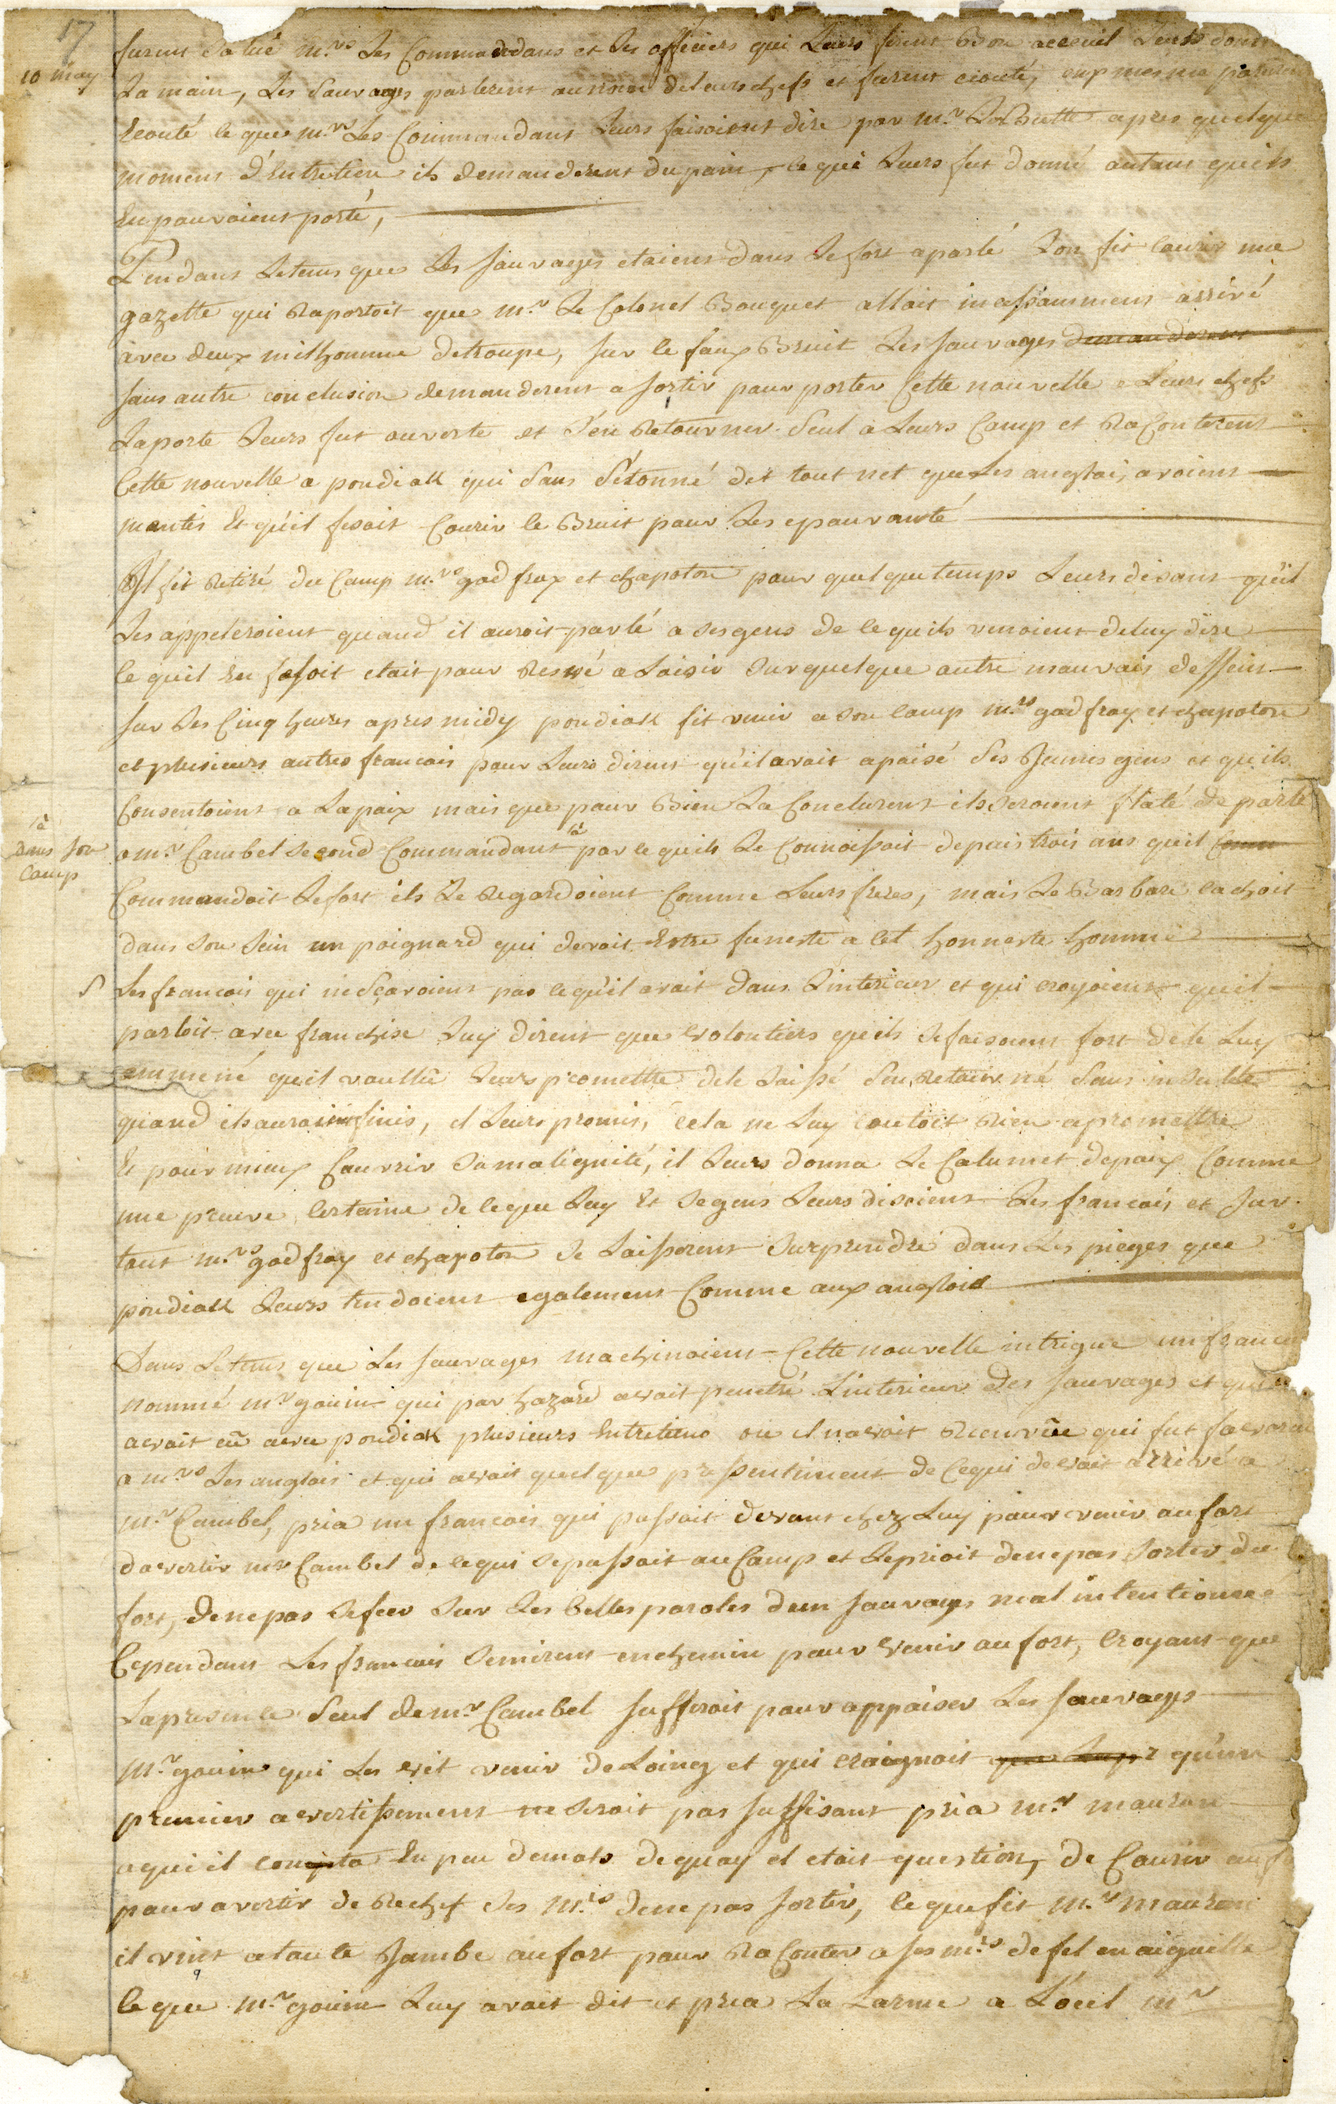 17
10 may
furent Salué m.rs Les Commandans et Les officiers qui Leurs firent Bon acceuil Leurs
La main, Les Sauvages parlerent au nom de leurs chefs et furent ecouté,
Ecouté le que m.rs Les Commandans Leurs faisoient dire par m.r LaButte apres quelque
moment d'Entretien ils demanderent du pain, ce qui Leurs fut donné autant quils
En pouvoient porté,
Pendans Letems que Les Sauvages etoient dans Lefort aparlé Lon fit courir une
gazette qui Raportoit que m.r Le Colonel Bouquet allait incessamment arrivé
avec deux mil homme detroupe, sur le faux Bruit Les sauvages demanderent
sans autre conclusion demanderent a sortir pour porter Cette nouvelle a Leurs chefs
Laporte Leurs fut ouverte et S'en Retourner Seul à Leurs Camp et RaConterent
Cette nouvelle a pondiak qui Sans S'étonné dit tout net que Les anglois avoient
mentis Et qu'il fesait Courir le Bruit pour Les epouvanté
Il fit Retiré du Camp m.rs godfroy et chapoton pour quelque temps Leurs disant qu'il
Les appeleroient quand il auroit parlé a ses gens de le quils venoient deluy dire
le quil En faisoit etait pour Resvé a Loisir Sur quelque autre mauvais dessein
sur Les Cinq heures apres midy pondiak fit venir a son Camp m.rs godfroy et chapoton
et plusieurs autres francois pour Leurs dirent qu'il avait apaisé Ses Jeunes gens et qu'ils
Consentoient a Lapaix mais que pour Bien La Conclurent ils seroient flaté de parlé
a m.r Cambel Second Commandant par lequils Le Connoissoit depuis trois ans quil
Dans son
Camp
Commandoit Lefort ils Le Regardoient Comme Leurs freres, mais Le Barbare cachoit
dans son Sein un poignard qui devoit Estre funeste a cet honneste homme
Les francois qui ne Sçavoient pas cequ'il avait dans Linterieur et qui croyoient quil
parloit avec franchise Luy dirent que volontiers qu'ils Se faisoient fort dele Luy
emmené quil voullû Leurs promettre dele Laissé S'en Retourné Sans insulte
quand ils auroient finis, il Leurs promis, cela ne Luy Coutoit Rien apromettre
Et pour mieux Couvrir Samalignité, il Leurs donna Le Calumet depaix Comme
une preuve Certaine de leque Luy Et Segens Leurs disoient Les francois et Sur
tout m.rs godfroy et chapoton Se Laisserent Surprendre dans Les pieges que
pondiak Leurs tendoient egalement Comme aux anglois
Dans Letems que Les sauvages machinoient Cette nouvelle intrigue un
nommé m.r gouin qui par hazard avait penetré Linterieur des sauvages et
avait eû avec pondiak plusieurs Entretiens ou il navoit Rien vûe qui fut
a m.rs Les anglois et qui avait quelque pressentiment de Cequi devait arrivé a
m.r Cambel, pria un francois qui passoit devant chez Luy pour venir aufort
davertir m.r Cambel de lequi Sepassoit au Camp et Leprioit denepas Sortir du
fort, denepas Sefier Sur Les belles paroles dun Sauvages mal intentionné
Cependant Les francois Semirent enchemin pour venir au fort, Croyant que
Lapresence Seul dem.r Cambel Suffiroit pour appaiser Les Sauvages
M.r gouin qui Les vit venir deLoing et qui craignoit qu'un
premier avertissement ne Seroit pas Suffisant pria m.r
aqui il conta En peu demots dequoy il etait question, de Courir
pour avertir de Rechef Ses M.rs denepas Sortir, le que fit m.r
il vint atoute Jambe aufort pour RaConter a ses m.rs defil enaiguille
le que m.r gouin Luy avait dit et pria La Larme a L'oeil m.r